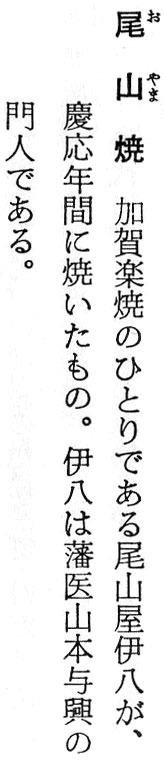 尾山焼　加賀楽焼のひとりである尾山屋伊八が、
慶応年間に焼いたもの。伊八は藩医山本与興の
門人である。